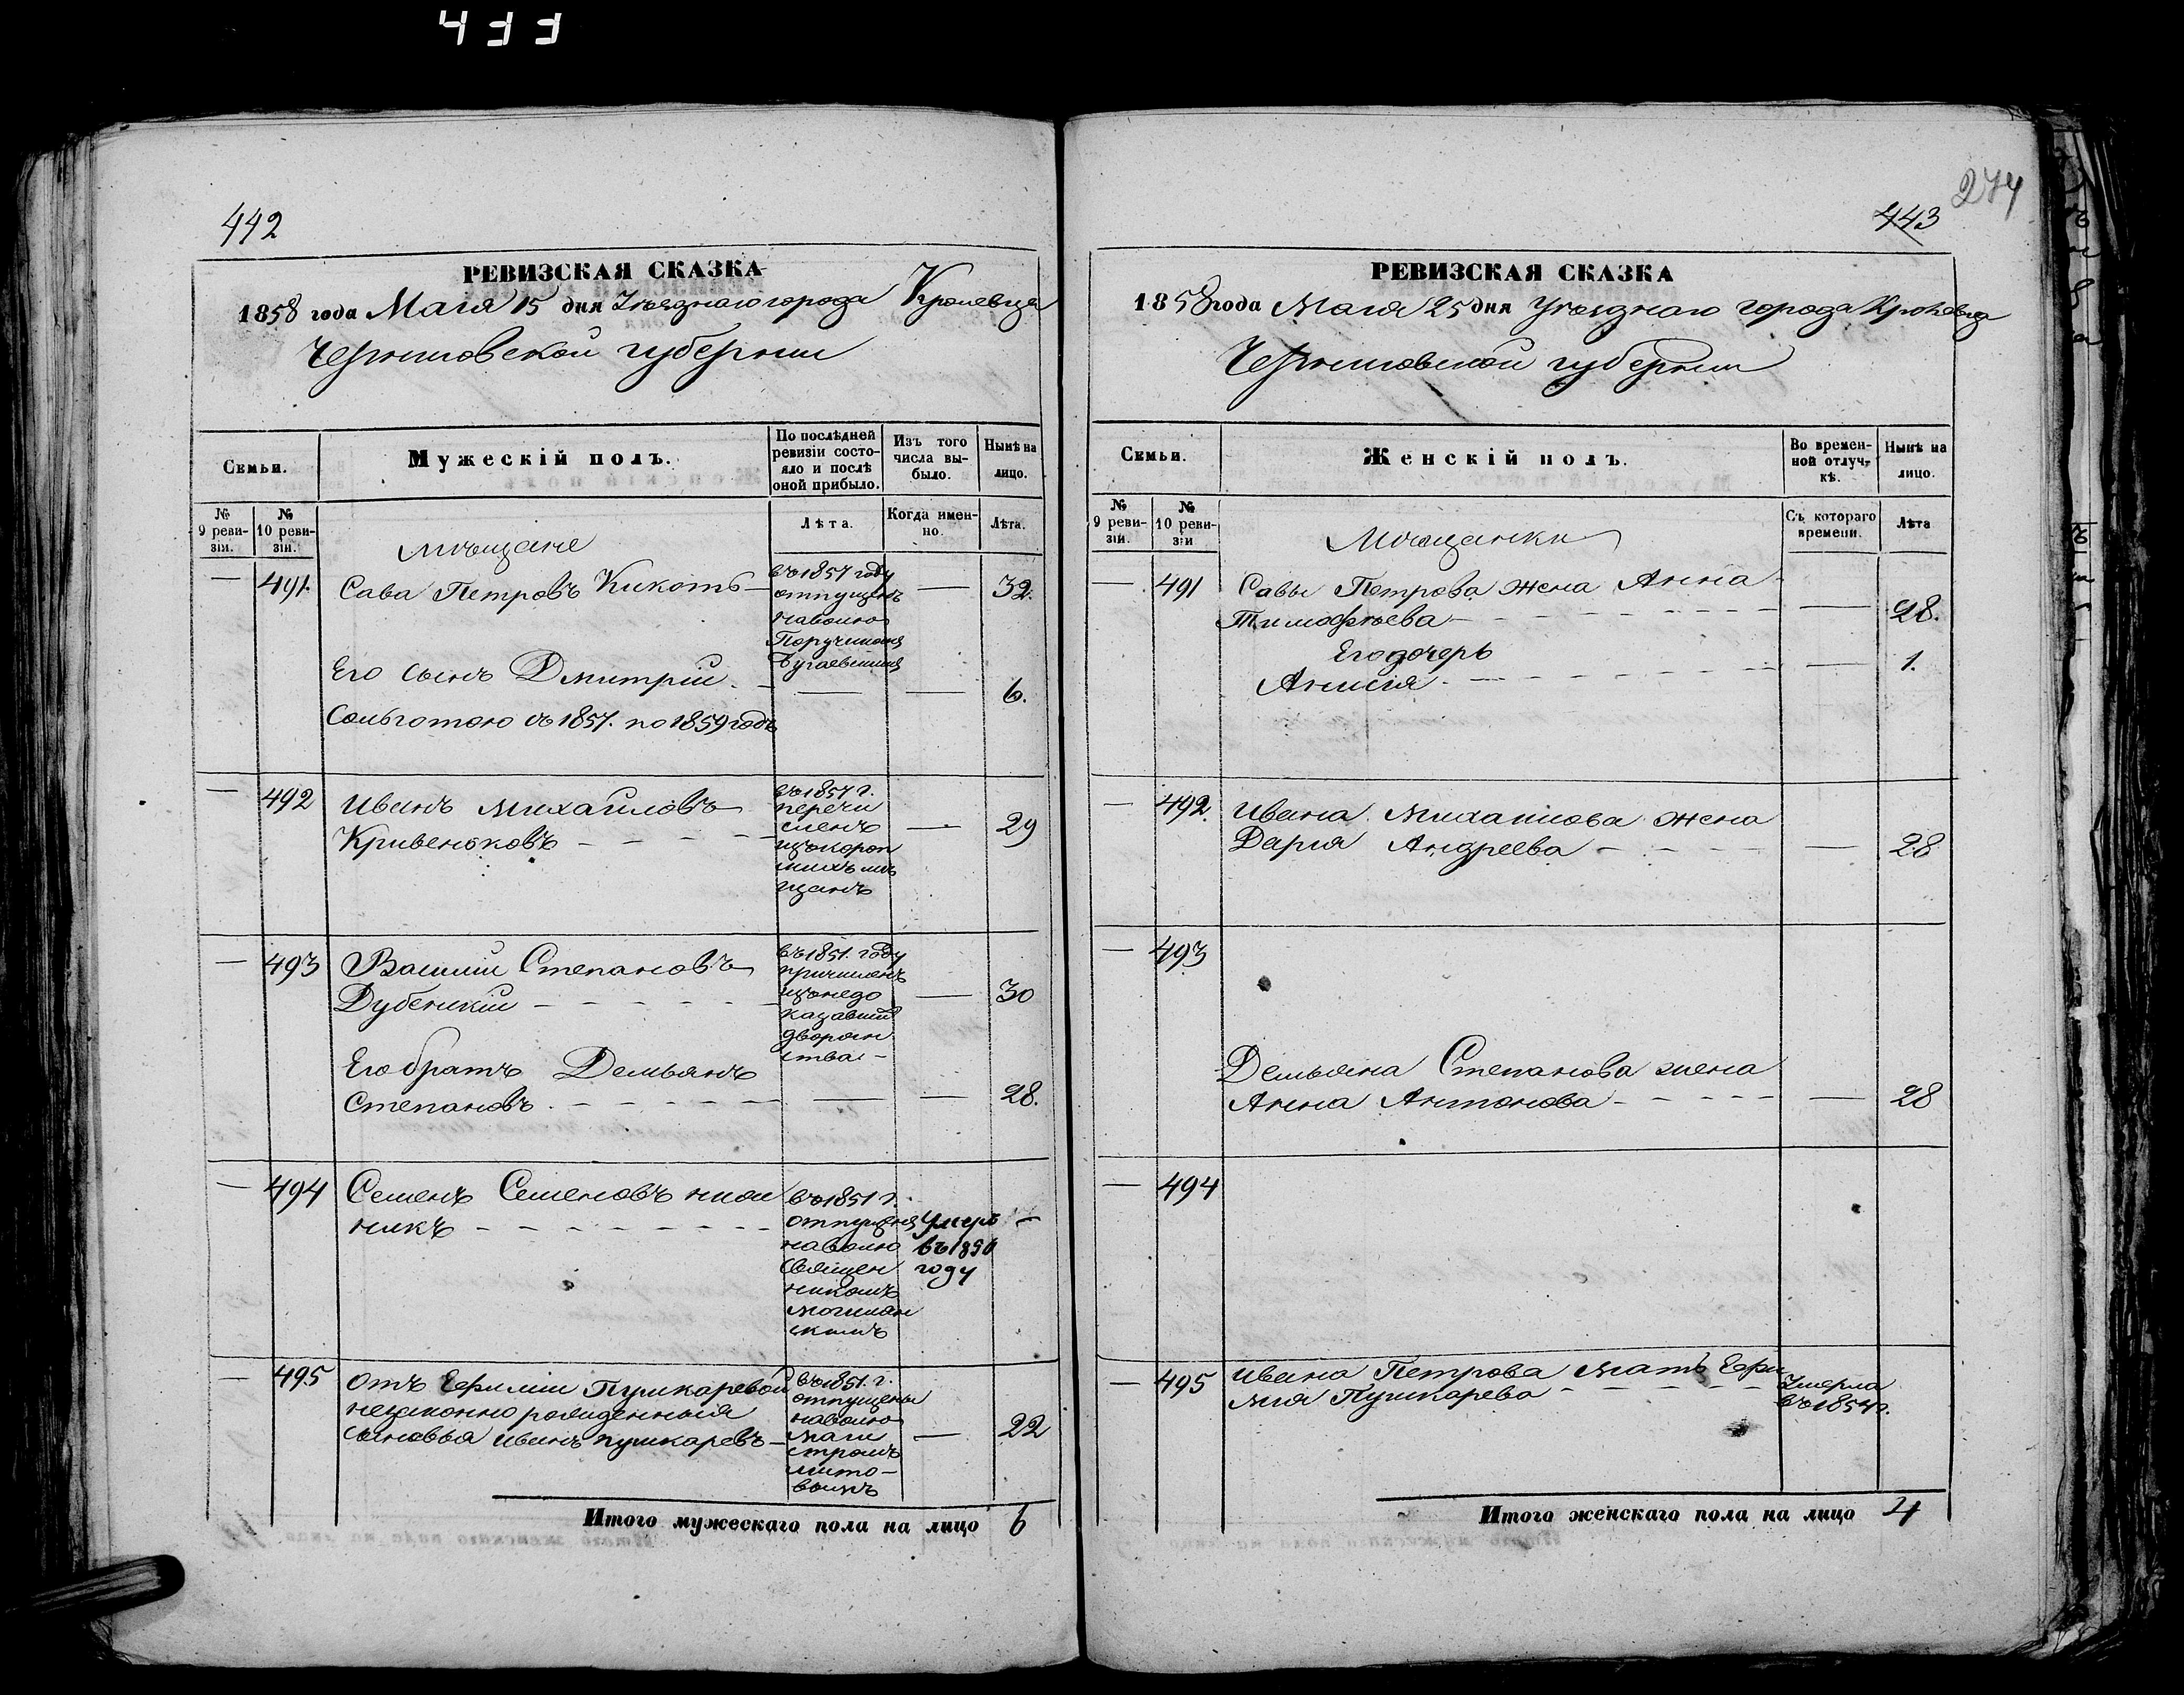 433
442
РЕВИЗСКАЯ СКАЗКА
1858 года Маія 15 дня Уѣзднаго города Кролевца
Черниговской губерніи
Семьи.
Мужескій полъ.
По послѣдней ревизіи состояло и послѣ оной прибыло.
Изъ того числа выбыло.
Нынѣ на лицо.
№ 9 ревизіи.
№ 10 ревизіи.
Лѣта.
Когда именно.
Лѣта.
Мѣщане
— 491. Сава Петровъ Кикоть — въ 1857 году — 32.
отпущенъ
наволю
Поручикомъ
Его сынъ Дмитрій — — — 6.
Сольготою съ 1857. по 1859 годъ
— 492 Иванъ Михайловъ въ 1857 г.
перечи
сленъ
Кривеноковъ — — — — 29
щанъ
— 493 Василий Степановъ въ 1851. году
причисленъ
Дубенскій — — — 30
изнедо
казавших
дворян
ства —
Его братъ Демьянъ
Степановъ. — — — 28.
— 494 Семенъ Семеновъ въ 1851 г.
никъ — — отпущенъ Умеръ —
наволю въ 1850
священ году
никомъ
— 495 отъ Ефиміи Пушкаревой въ 1851. г.
незаконно рожденныя отпущены
наволю
сыновья Иванъ Пушкаревъ — — 22
Итого мужескаго пола на лицо 6
274
443
РЕВИЗСКАЯ СКАЗКА
1858 года Маія 25 дня Уѣзднаго города Кролевца
Черниговской губерніи
Семьи.
Женскій полъ.
Во временной отлучкѣ.
Нынѣ на лицо.
№ 9 ревизіи.
№ 10 ревизіи
Съ котораго времени.
Лѣта
Мѣщанки
— 491 Савы Петрова жена Анна
Тимофѣева — — — 28.
Его дочерь
Анисія — — — 1.
— 492. Ивана Михайлова жена
Дарія Андреева — — — 28
— 493
Демьяна Степанова жена
Анна Антонова — — — 28
— 494
— 495 Ивана Петрова мать Ефи
мія Пушкарева — — — Умерла
въ 1854 г.
Итого женскаго пола на лицо 4